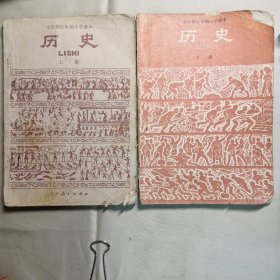 全日制五年制小学课本
历史
LISHI
上册
人民教育出版社
全日制五年制小学课本
历史
下册